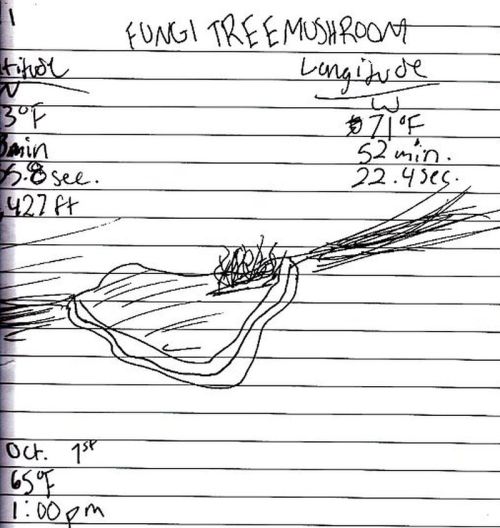 1
FUNGI TREE MUSHROOM
titude Longitude
N W
3°F 71°F
min 52 min.
5.8 sec. 22.4 sec.
,427 ft
Oct. 1st
65°F
1:00pm